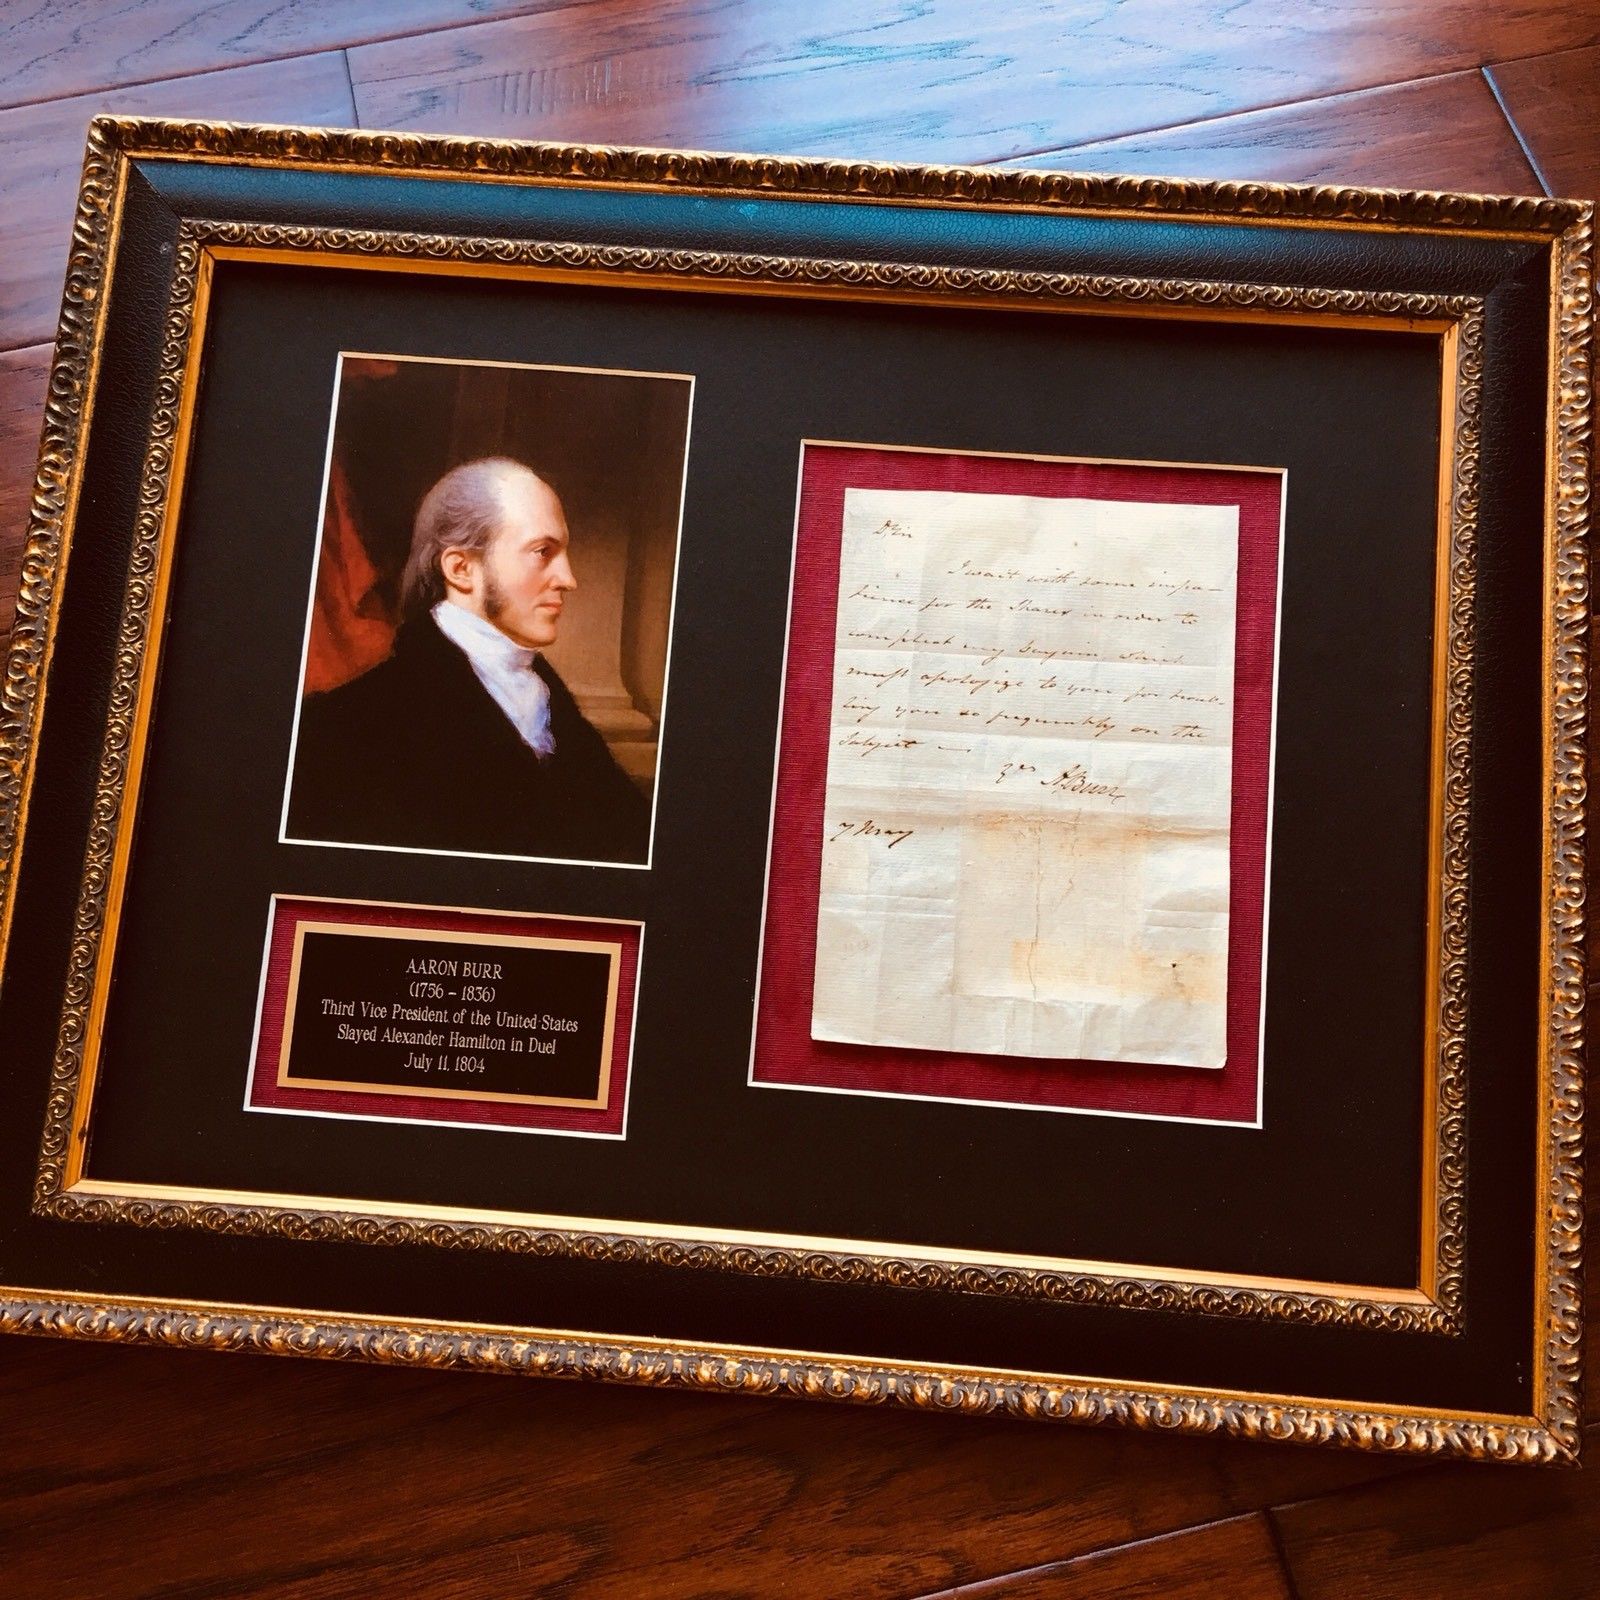 AARON BURR
(1756 – 1836)
Third Vice President of the United States
Slayed Alexander Hamilton in Duel
July 11, 1804
D Sir
I wait with some impa–
tience for the Shares in order to
compleat my bargain which
must apologize to you for troub-
ling you so frequently on the
Subject —
Yrs A, Burr
7 May